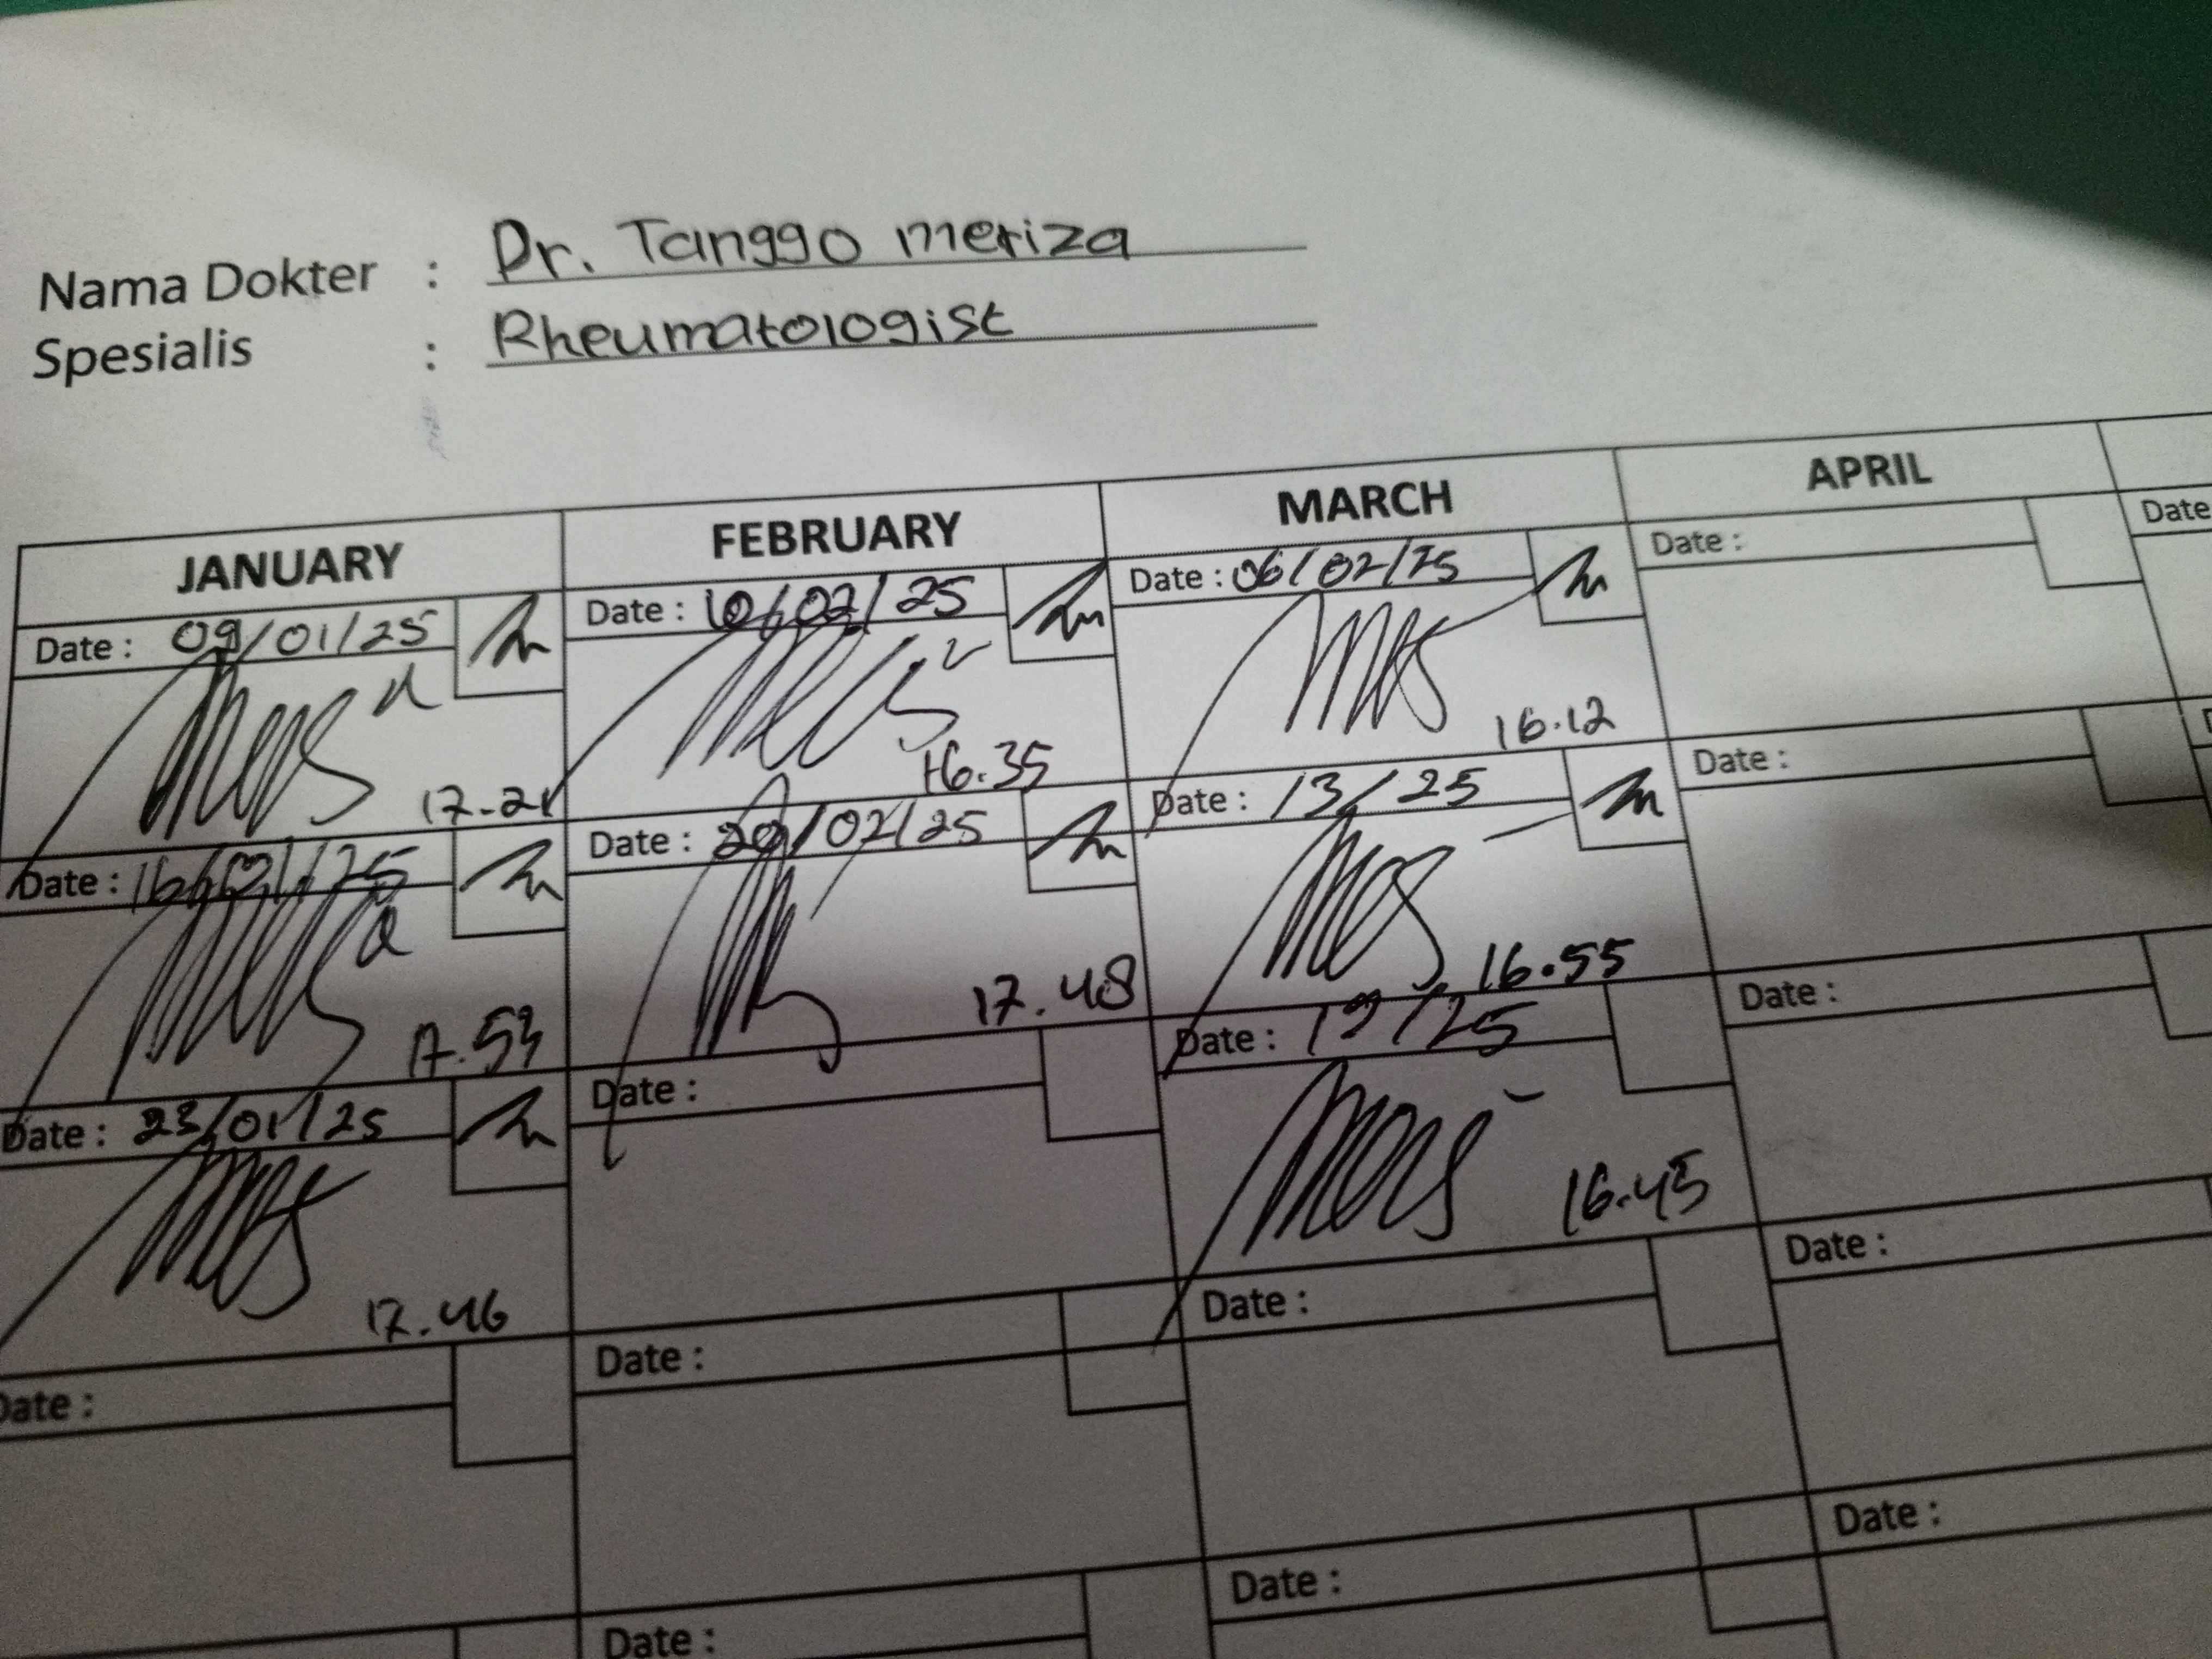 Nama Dokter : Dr. Tanggo meriza
Spesialis : Rheumatologist
JANUARY FEBRUARY MARCH APRIL
Date : 09/01/25 Date : 10/02/25 Date : 06/02/25 Date : Date
17.21 16.35 16.12
Date : 16/01/25 Date : 20/02/25 Date : 13/25 Date :
17.53 17.48 16.55
Date : 23/01/25 Date : Date : 19/25 Date :
17.46 16.45
Date : Date : Date : Date :
Date : Date : Date :